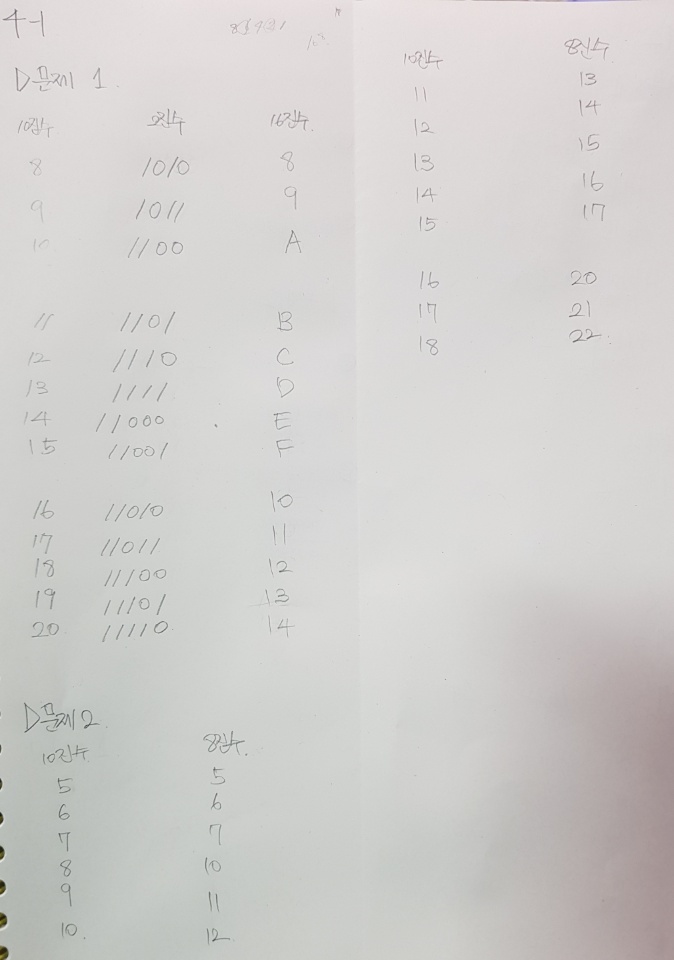 4-1
▷문제 1.
10진수 2진수 16진수.
8 1010 8
9 1011 9
10 1100 A
11 1101 B
12 1110 C
13 1111 D
14 11000 E
15 11001 F
16 11010 10
17 11011 11
18 11100 12
19 11101 13
20 11110 14
▷문제 2.
10진수. 8진수.
5 5
6 6
7 7
8 10
9 11
10. 12
10진수 8진수
11 13
12 14
13 15
14 16
15 17
16 20
17 21
18 22